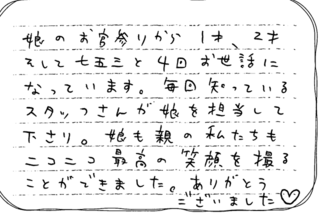 娘のお宮参りから1才、2才
そして七五三と4回お世話に
なっています。毎回知っている
スタッフさんが娘を担当して
下さり。娘も親の私たちも
ニコニコ最高の笑顔を撮る
ことができました。ありがとう
ございました♡